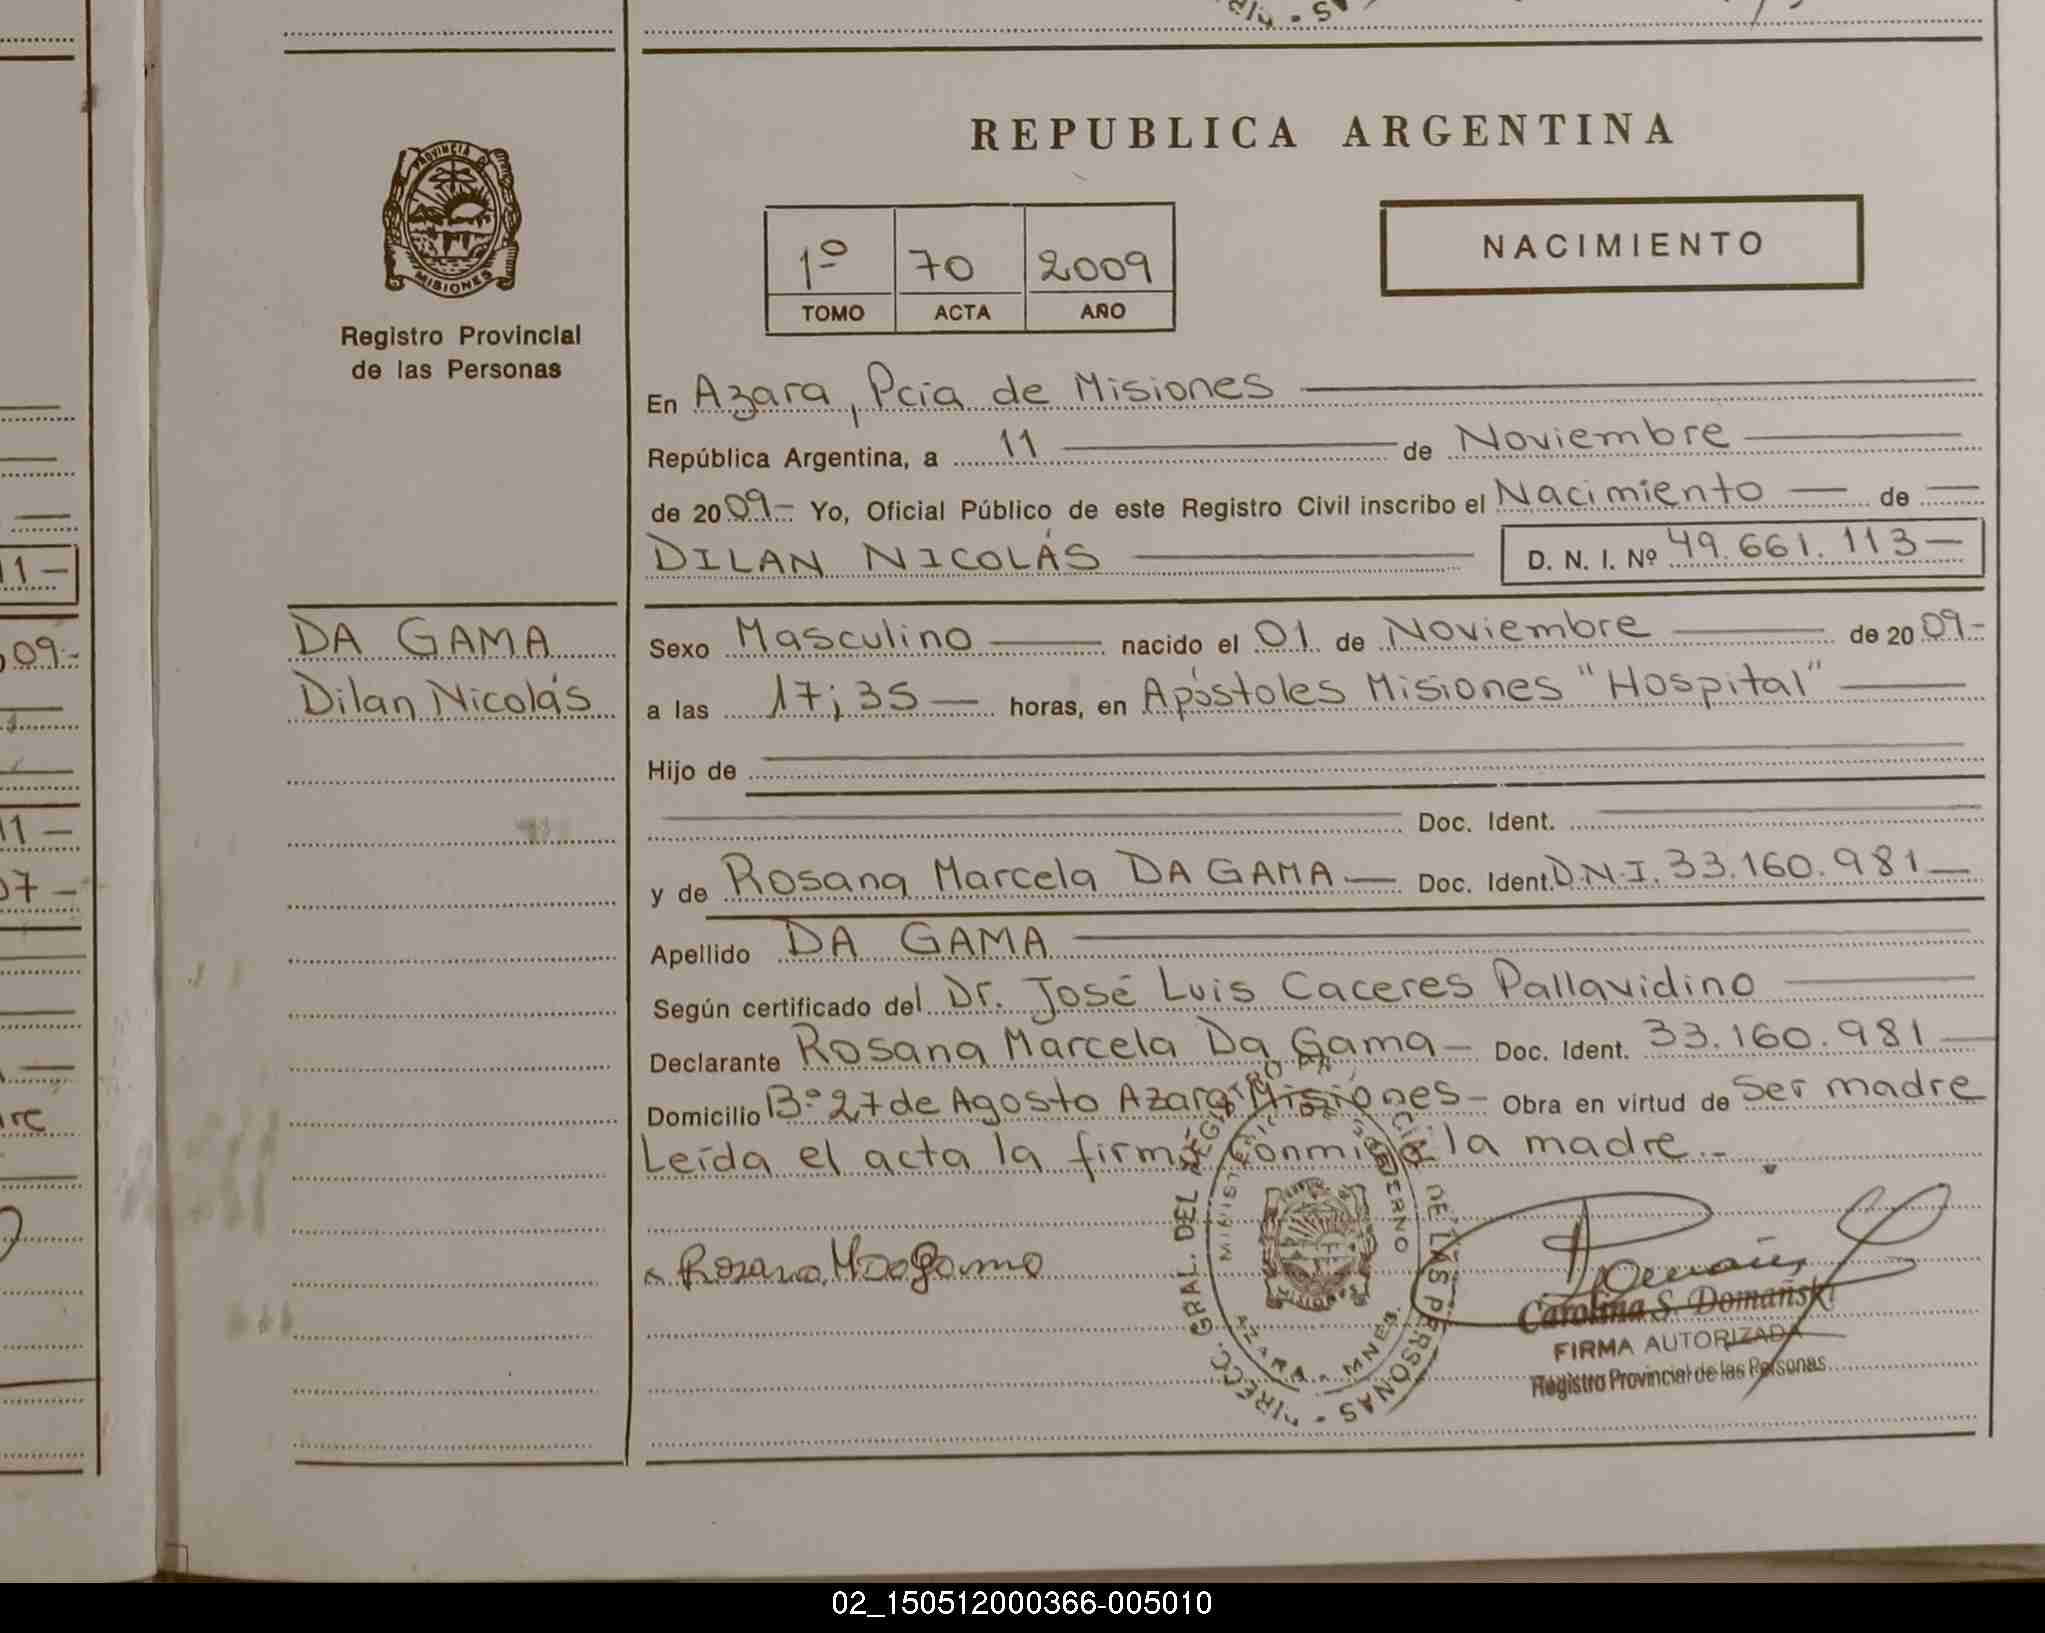 REPUBLICA ARGENTINA
PROVINCIA DE
MISIONES
Registro Provincial
de las Personas
1º 70 2009
TOMO ACTA AÑO
NACIMIENTO
En Azara, Pcia de Misiones
República Argentina, a 11 de Noviembre
de 2009- Yo, Oficial Público de este Registro Civil inscribo el Nacimiento — de —
DILAN NICOLÁS — D. N. I. Nº 49.661.113—
DA GAMA
Dilan Nicolás
Sexo Masculino — nacido el 01 de Noviembre — de 2009-
a las 17;35 — horas, en Apóstoles Misiones "Hospital" —
Hijo de —
— Doc. Ident. —
y de Rosana Marcela DA GAMA — Doc. Ident. D.N.I. 33.160.981—
Apellido DA GAMA —
Según certificado del Dr. José Luis Caceres Pallavidino —
Declarante Rosana Marcela Da Gama — Doc. Ident. 33.160.981—
Domicilio Bº 27 de Agosto Azara Misiones- Obra en virtud de Ser madre
Leída el acta la firma conmigo la madre.-
DIRECC. GRAL. DEL REGISTRO DE LAS PERSONAS
MINISTERIO DE GOBIERNO
AZARA - MNES.
Carolina S. Domański
FIRMA AUTORIZADA
Registro Provincial de las Personas
11 —
09-
11 —
07 -
02_150512000366-005010